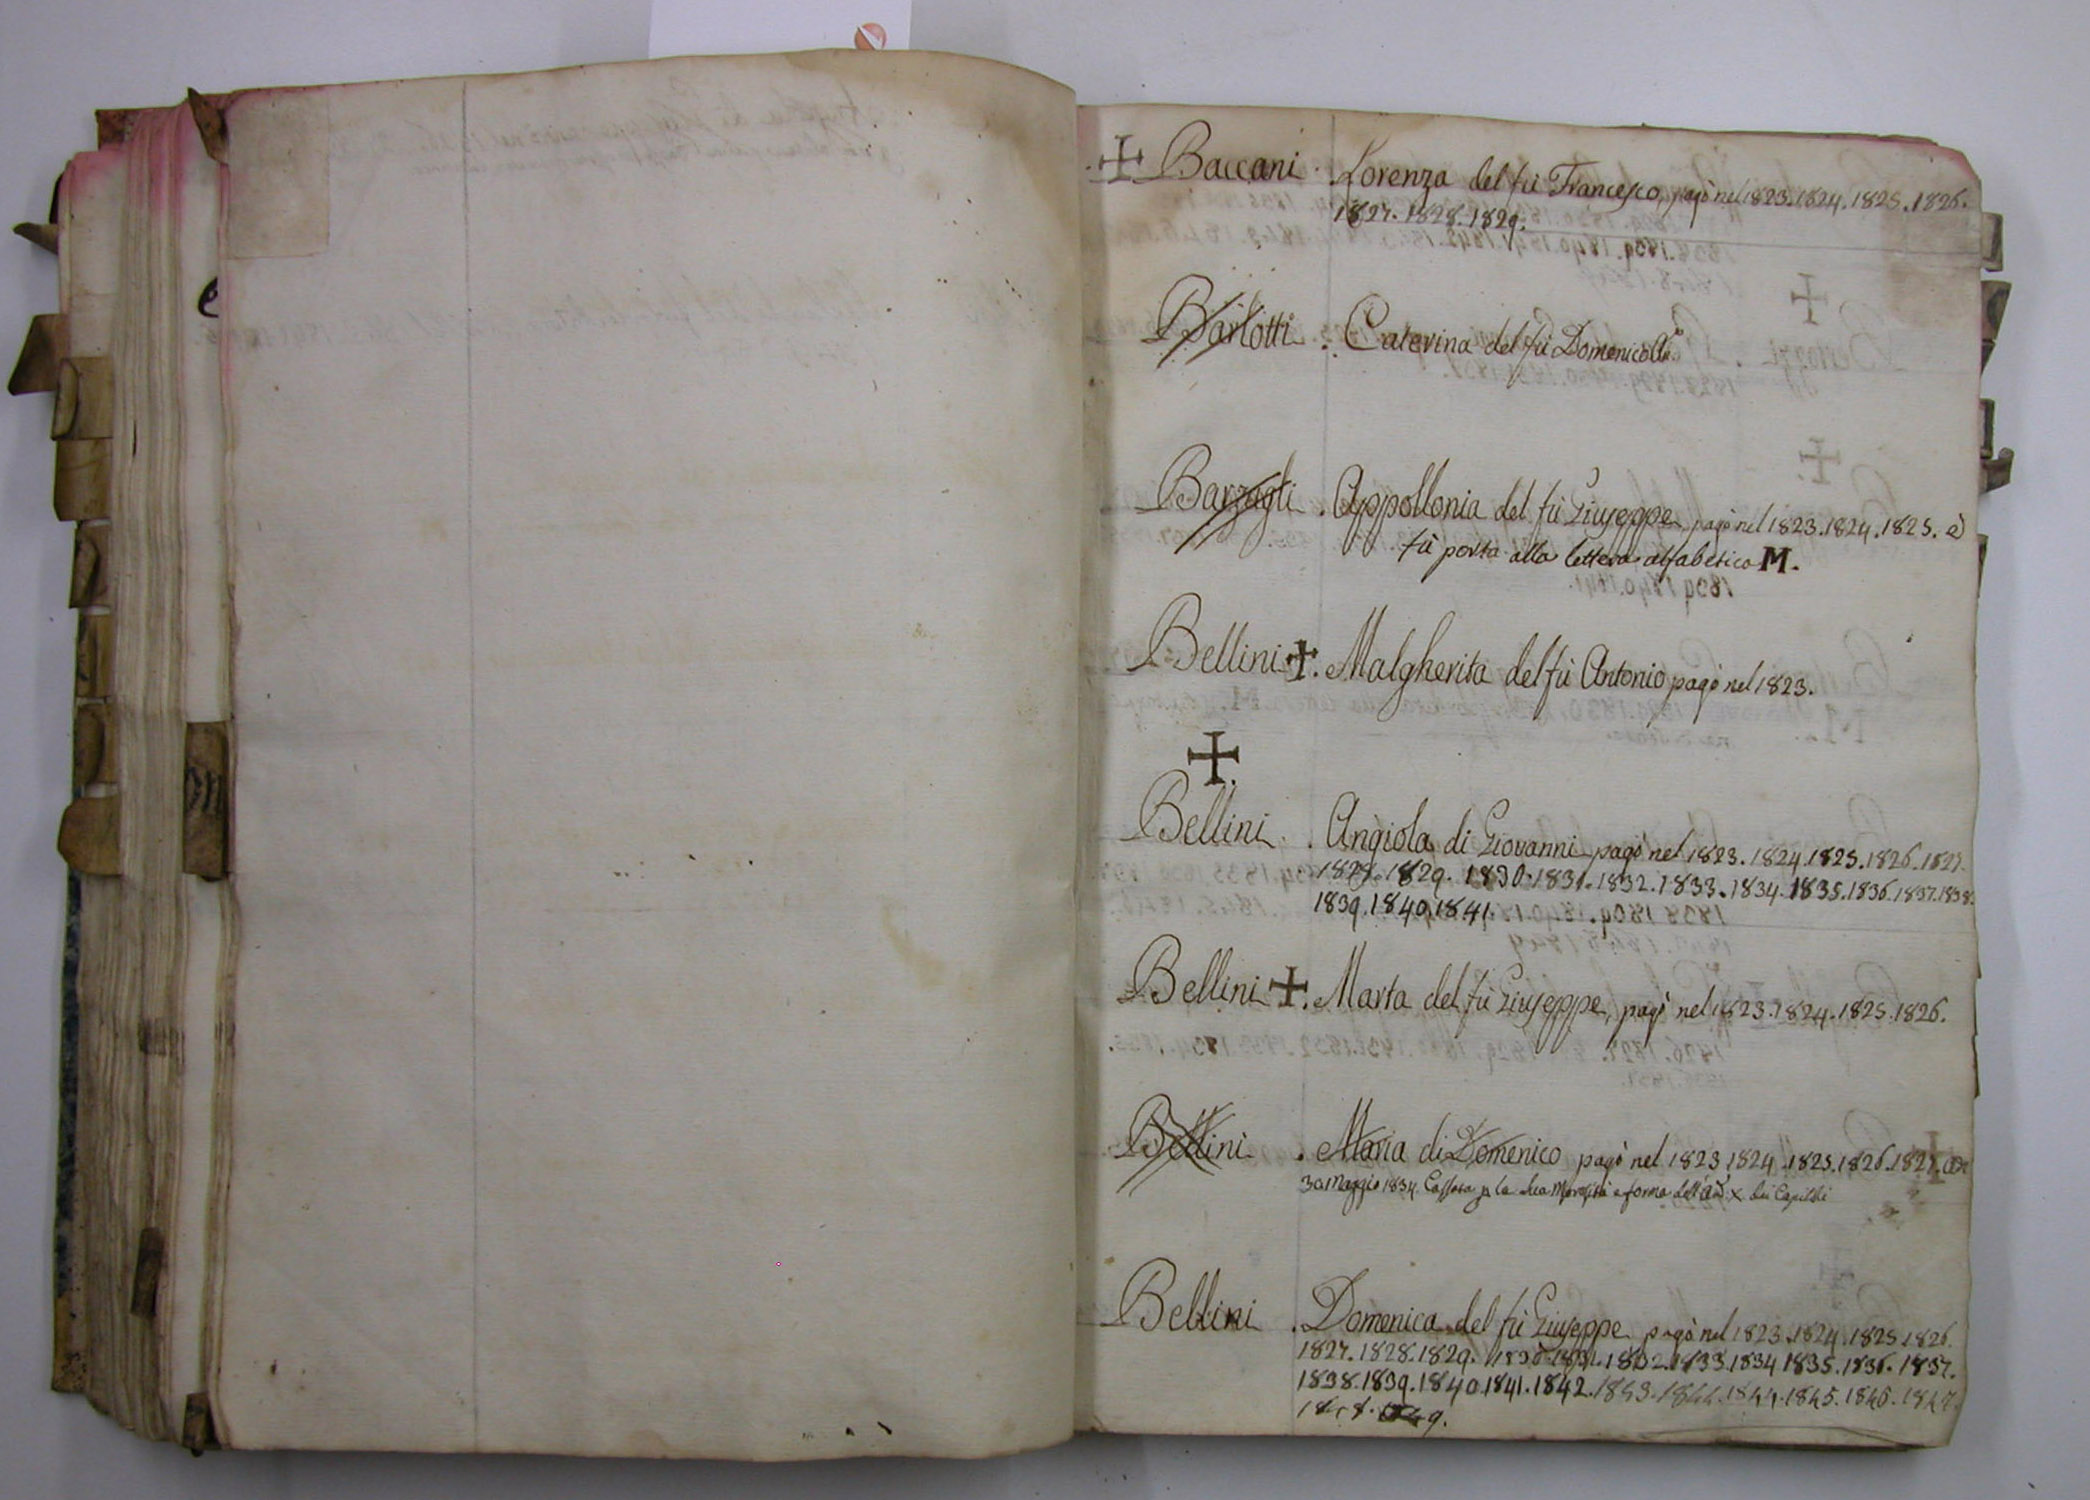 Baccani . Lorenza del fù Francesco, pagò nel 1823. 1824. 1825. 1826.
1827. 1828. 1829.
Barlotti . Caterina del fù Domenico
Barzagli . Appollonia del fù Giuseppe pagò nel 1823. 1824. 1825. e
fù porta alla lettera alfabetica M.
Bellini . Malgherita del fù Antonio pagò nel 1823.
Bellini . Angiola di Giovanni pagò nel 1823. 1824. 1825. 1826. 1827.
1828. 1829. 1830. 1831. 1832. 1833. 1834. 1835. 1836. 1837. 1838.
1839. 1840. 1841.
Bellini . Marta del fù Giuseppe, pagò nel 1823. 1824. 1825. 1826.
Bellini . Maria di Domenico pagò nel 1823 1824 . 1825. 1826. 1827.
30 Maggio 1834. Cassata p la sua a forma dell' X dei Capitoli
Bellini . Domenica del fù Giuseppe pagò nel 1823. 1824. 1825. 1826.
1827. 1828. 1829. 1830. 1831. 1832. 1833. 1834 1835. 1836. 1837.
1838. 1839. 1840. 1841. 1842. 1843. 1844. 1845. 1846. 1847.
1848. 1849.